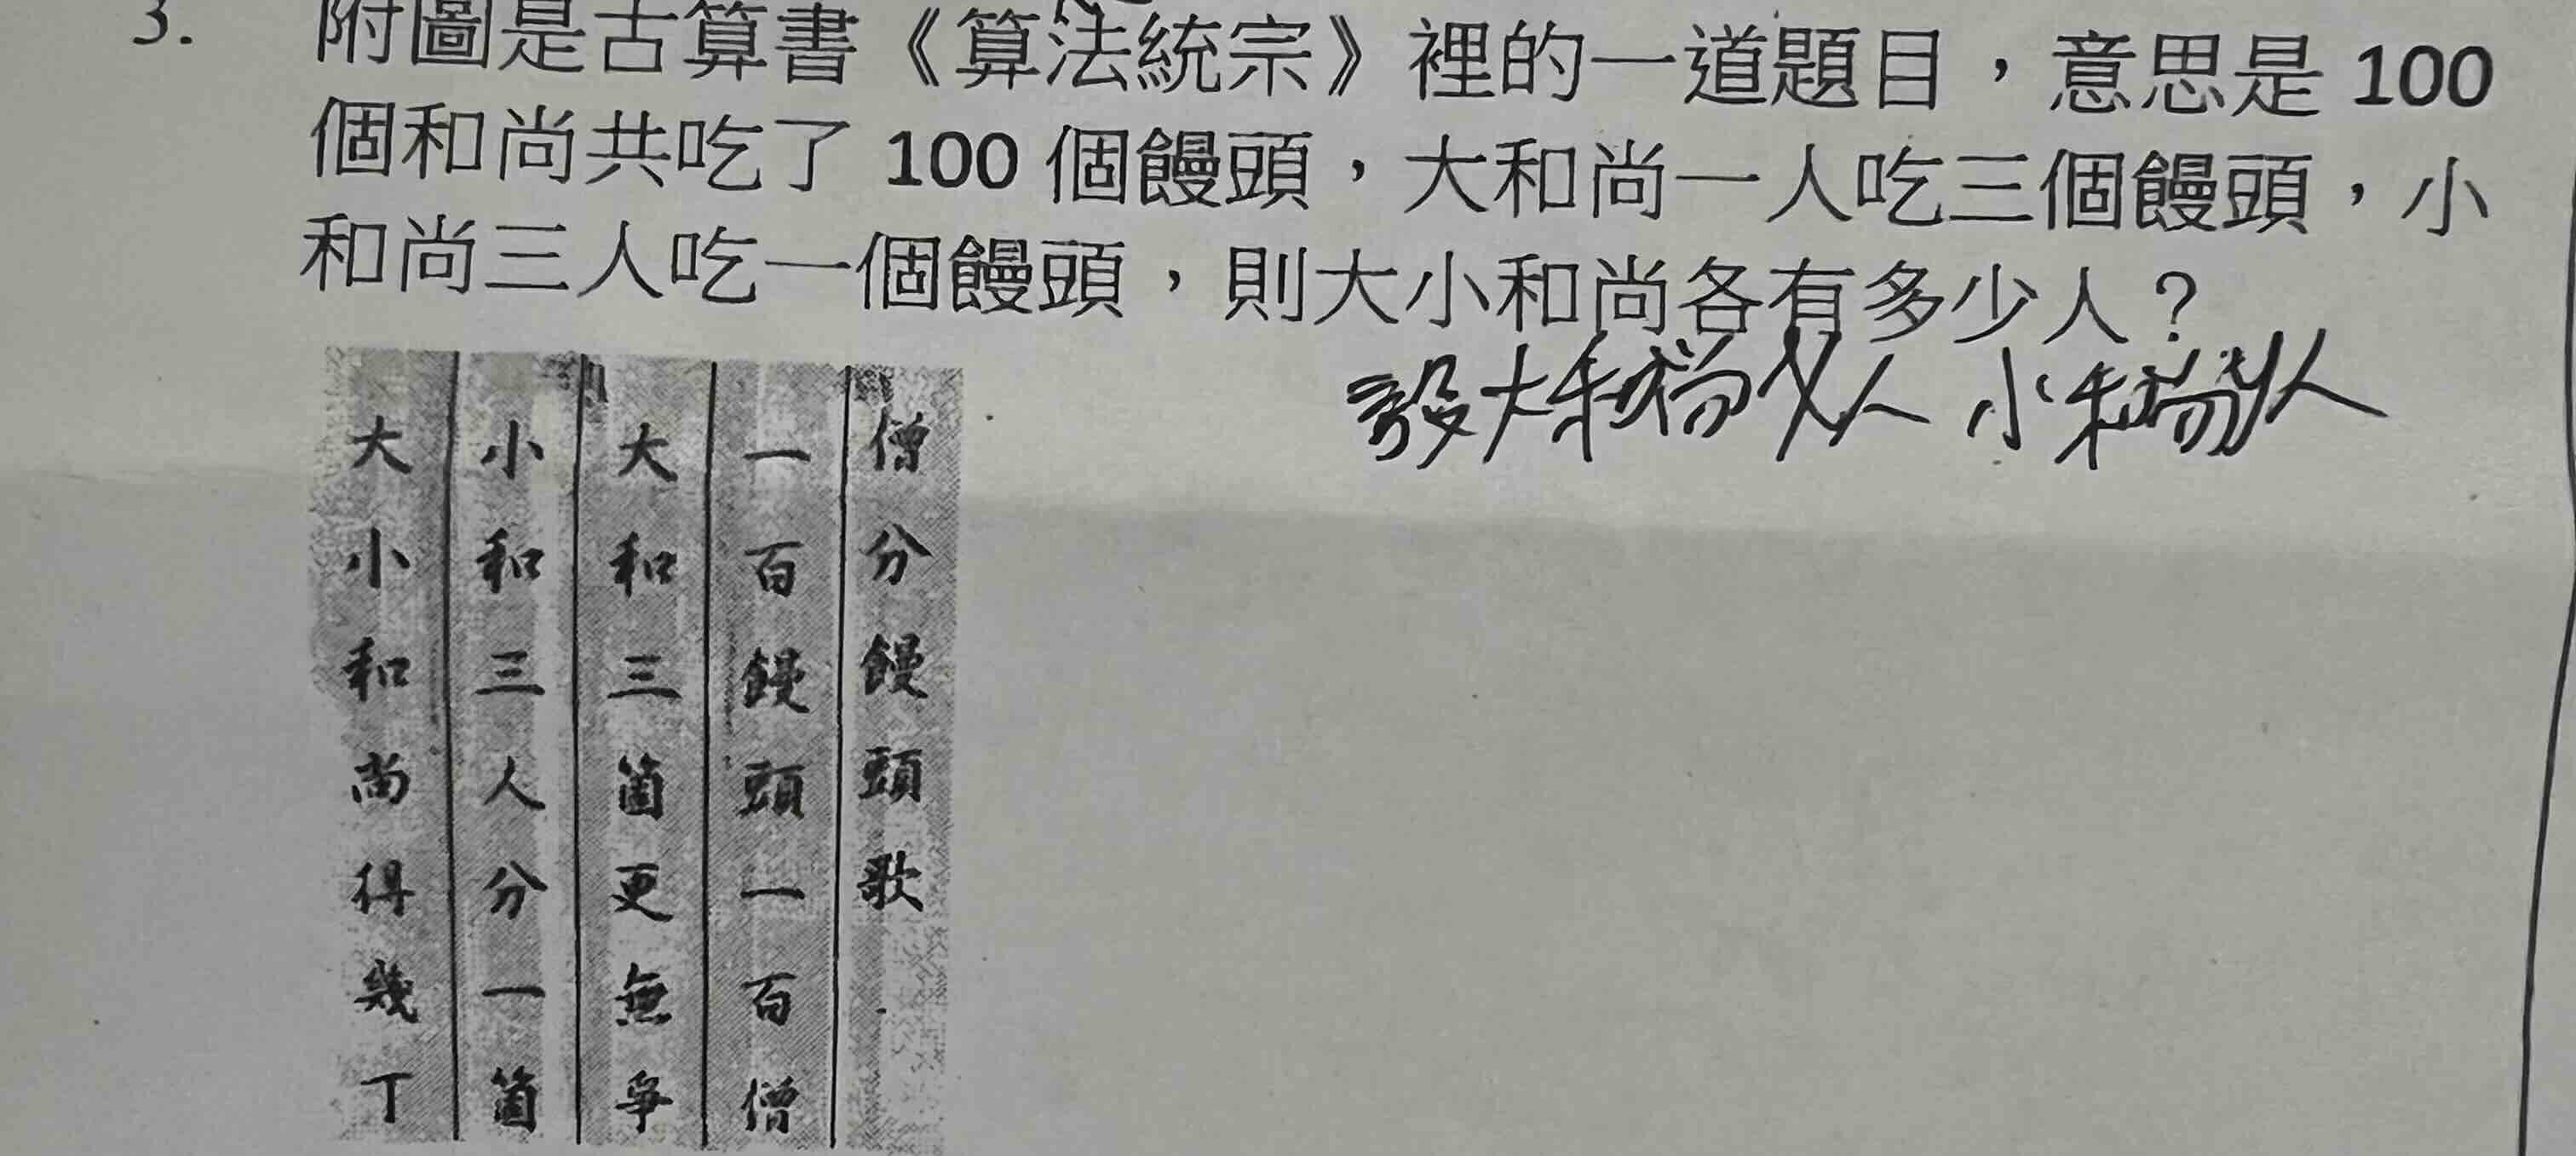 3. 附圖是古算書《算法統宗》裡的一道題目，意思是 100
個和尚共吃了 100 個饅頭，大和尚一人吃三個饅頭，小
和尚三人吃一個饅頭，則大小和尚各有多少人？
設大和尚X人 小和尚y人
僧分饅頭歌
一百饅頭一百僧
大和三箇更無爭
小和三人分一箇
大小和尚得幾丁